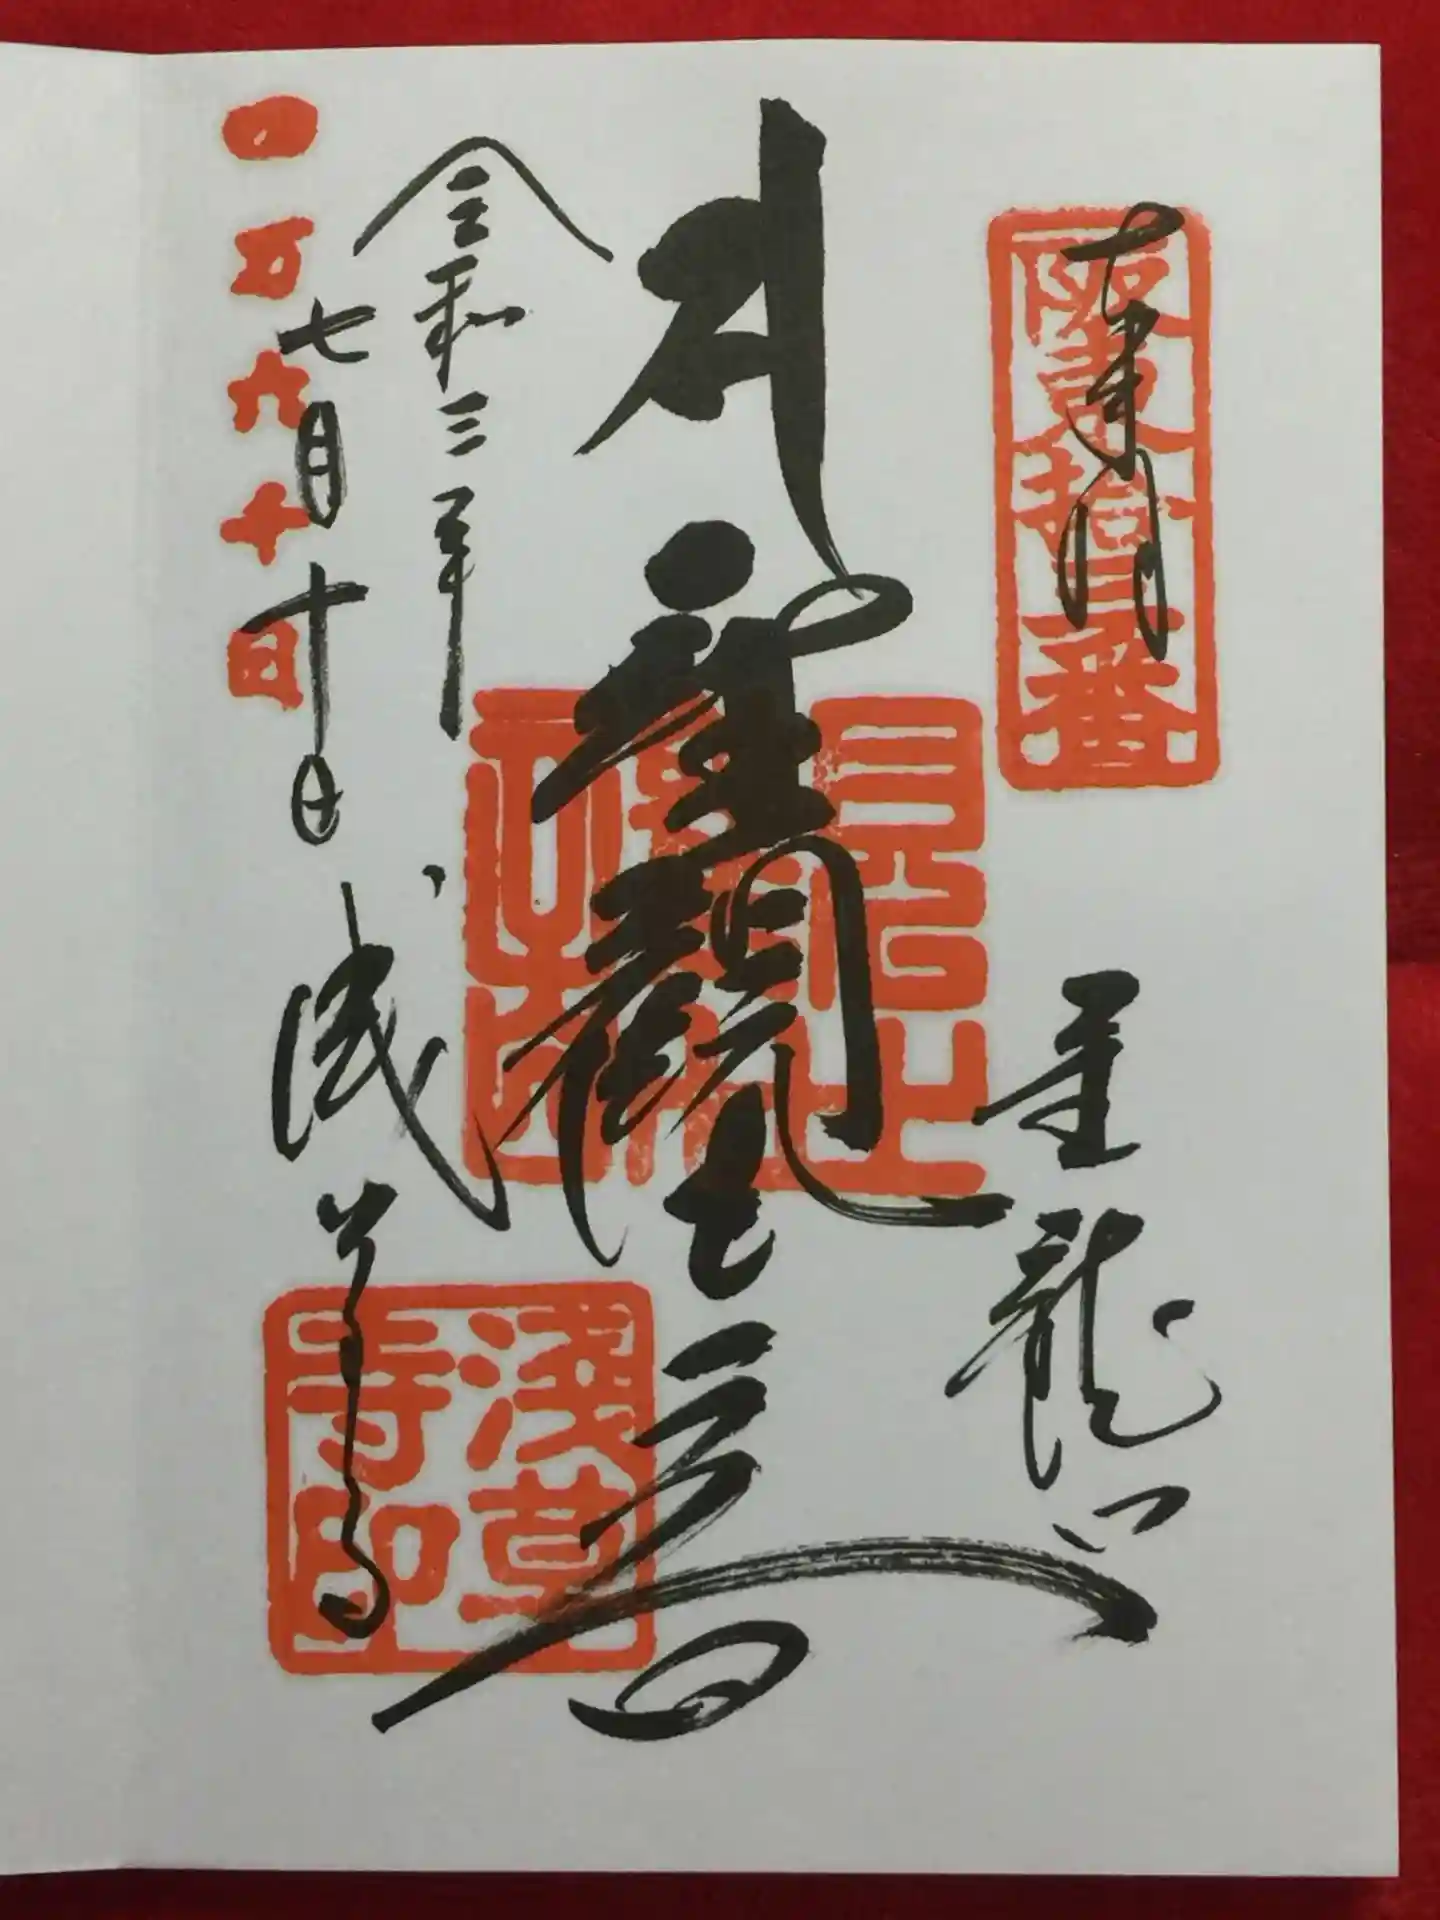 奉拝
阪東拾三番
金龍山
聖觀世音
令和三年
七月十日
四万六千日
浅草寺
淺草寺印